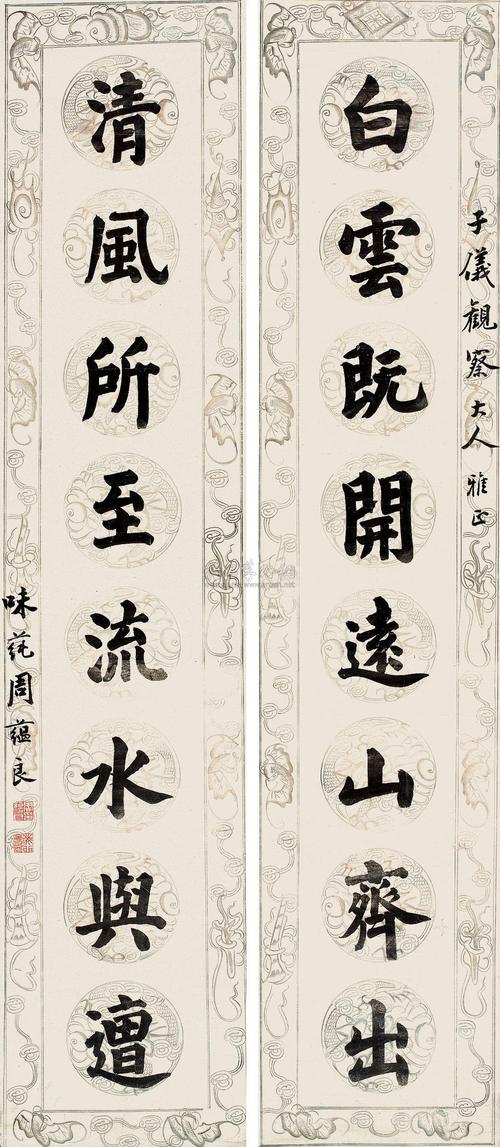 子儀觀察大人雅正
白雲既開遠山齊出
清風所至流水與遭
味莼周蘊良